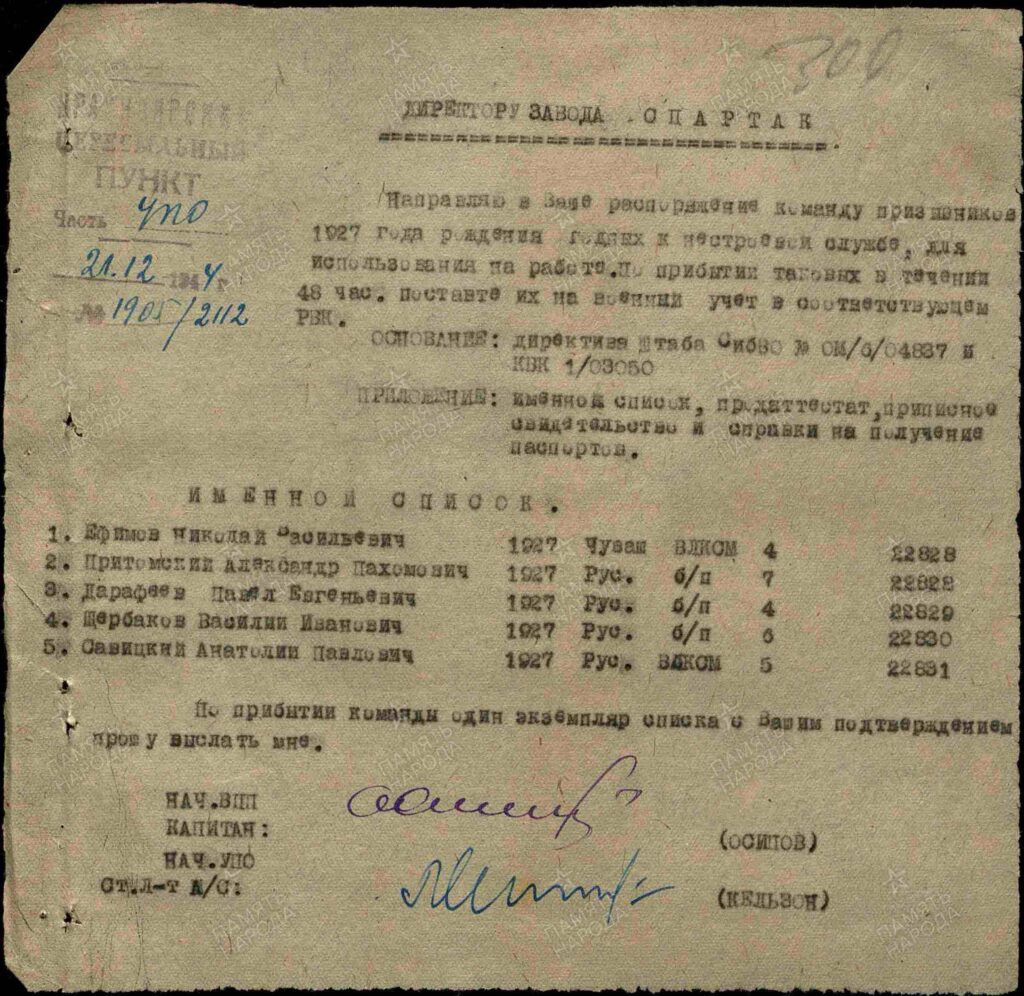 300
ДИРЕКТОРУ ЗАВОДА СПАРТАК
ПЕРЕСЫЛЬНЫЙ
ПУНКТ
Часть УПО
21.12 1944 г
№ 1905/2112
Направляю в Ваше распоряжение команду призывников
1927 года рождения годных к нестроевой службе, для
использования на работе. По прибытии таковых в течении
48 час. поставте их на военный учет в соответствующем
РВК.
ОСНОВАНИЕ: директива штаба СибВО № ОМ/6/04837 и
КВК 1/03050
ПРИЛОЖЕНИЕ: именной список, продаттестат, приписное
свидетельство и справки на получение
паспортов.
ИМЕННОЙ СПИСОК.
1. Ефимов Николай Васильевич 1927 Чуваш ВЛКСМ 4 22828
2. Притомский Александр Пахомович 1927 Рус. б/п 7 22828
3. Дарафеев Павел Евгеньевич 1927 Рус. б/п 4 22829
4. Щербаков Василий Иванович 1927 Рус. б/п 6 22830
5. Савицкий Анатолий Павлович 1927 Рус. ВЛКСМ 5 22831
По прибытии команды один экземпляр списка с Вашим подтверждением
прошу выслать мне.
НАЧ.ВПП
КАПИТАН: (ОСИПОВ)
НАЧ.УПО
СТ.Л-Т А/С: (КЕЛЬЗОН)
ПАМЯТЬ НАРОДА